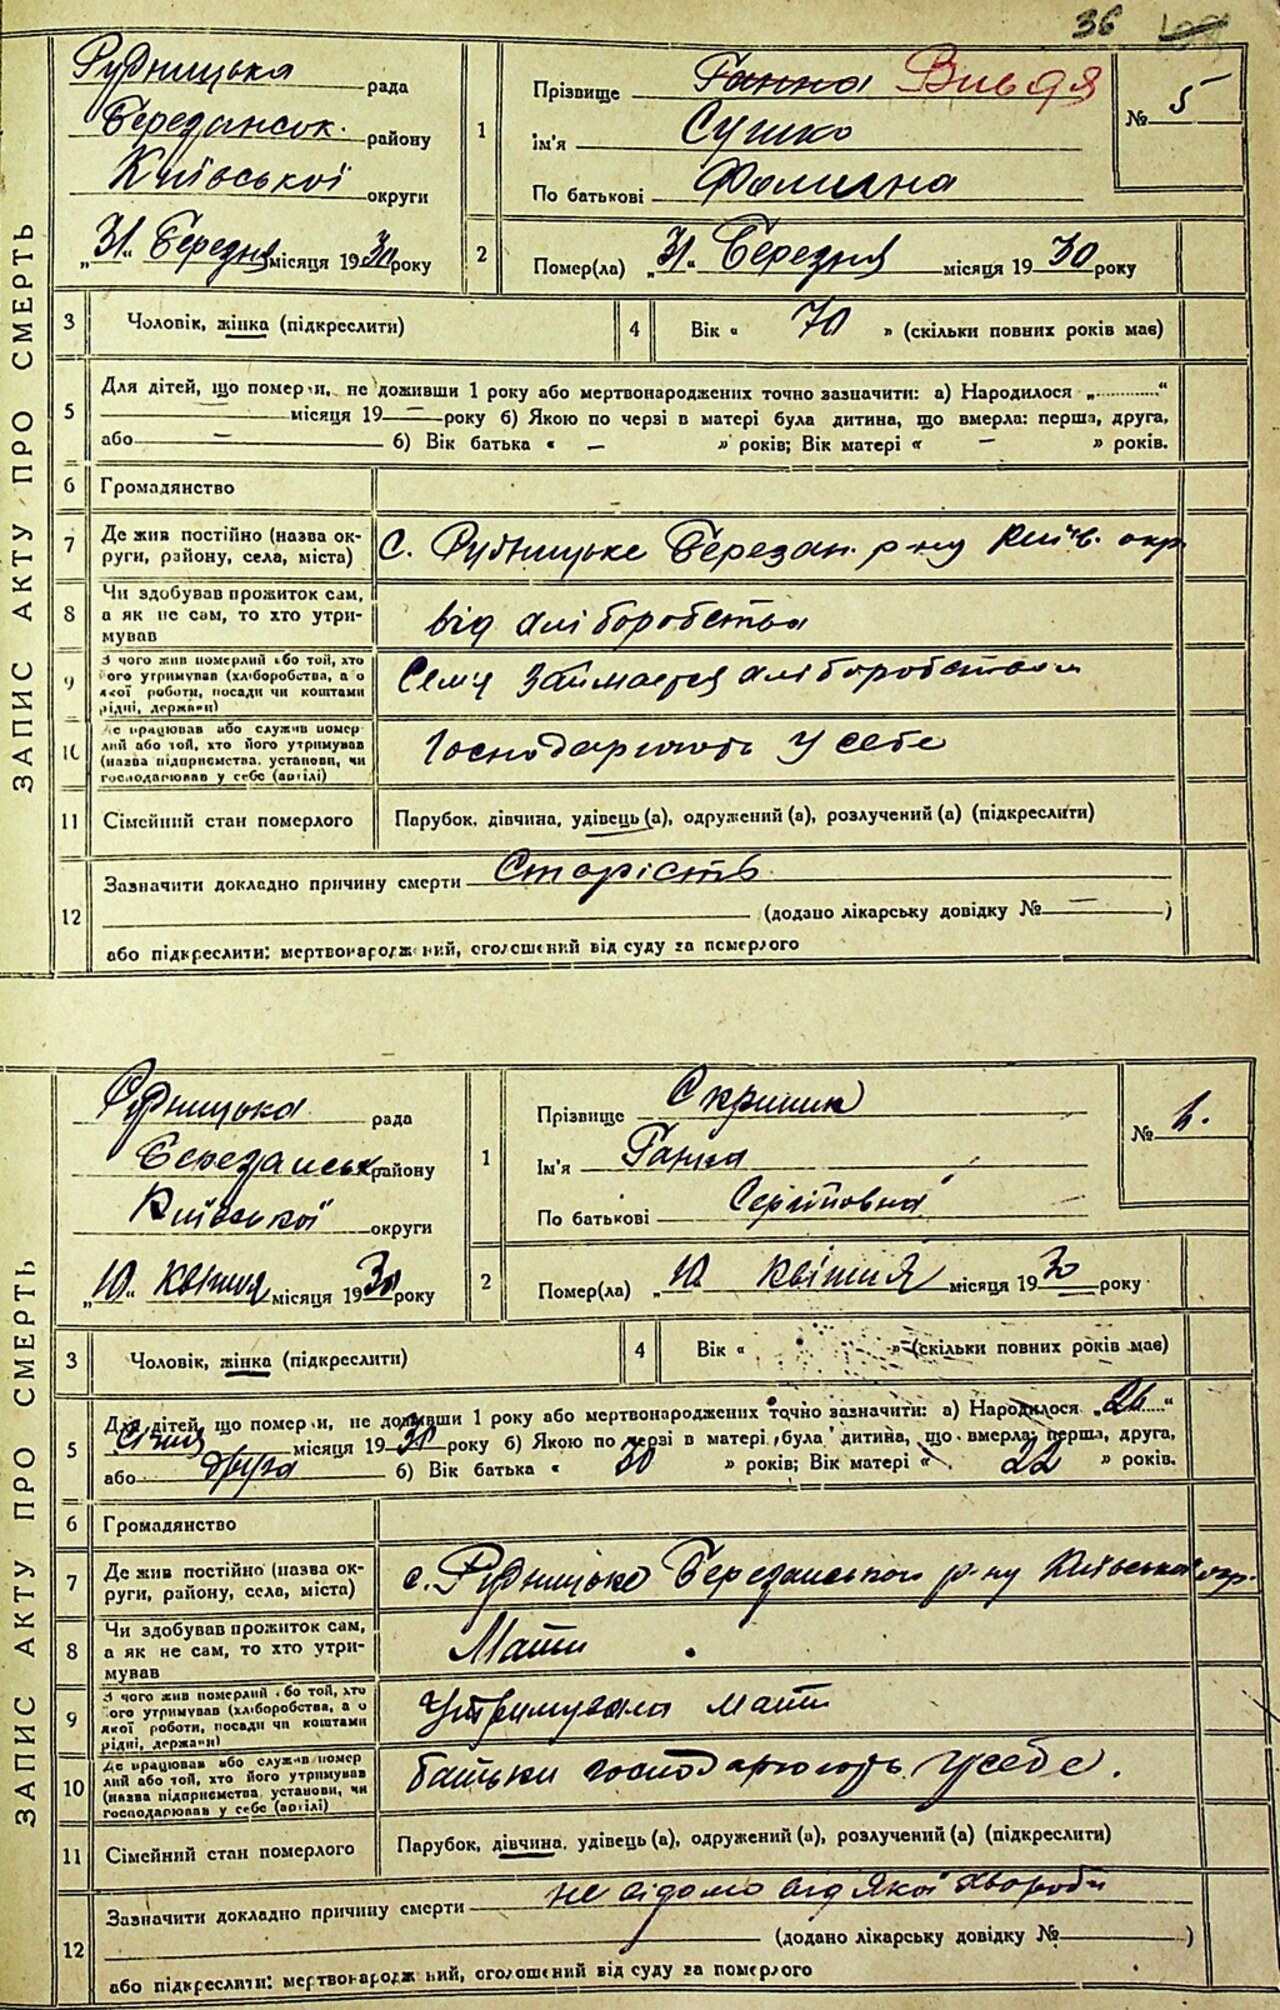 36
ЗАПИС АКТУ ПРО СМЕРТЬ
Рудницька рада
Березанськ. району
Київської округи
„31“ Березня місяця 1930 року
1 Прізвище Ганна
Ім'я Сушко
По батькові
№ 5
2 Помер(ла) „31“ Березня місяця 1930 року
3 Чоловік, жінка (підкреслити)
4 Вік « 70 » (скільки повних років має)
5 Для дітей, що померли, не доживши 1 року або мертвонароджених точно зазначити: а) Народилося „ “
— місяця 19 — року б) Якою по черзі в матері була дитина, що вмерла: перша, друга,
або — б) Вік батька « — » років; Вік матері « — » років.
6 Громадянство
7 Де жив постійно (назва ок-
руги, району, села, міста) с. Рудницьке Березан. р-ну Київ. окр.
8 Чи здобував прожиток сам,
а як не сам, то хто утри-
мував від хліборобства
9 З чого жив померлий або той, хто
його утримував (хліборобства, а о
якої роботи, посади чи коштами
рідні, держави) Семя займається хліборобством
10 Де працював або служив помер
лий або той, хто його утримував
(назва підприємства, установи, чи
господарював у себе (артілі) Господарюють у себе
11 Сімейний стан померлого Парубок, дівчина, удівець (а), одружений (а), розлучений (а) (підкреслити)
12 Зазначити докладно причину смерти Старість
(додано лікарську довідку № — )
або підкреслити: мертвонароджений, оголошений від суду за померлого
ЗАПИС АКТУ ПРО СМЕРТЬ
Рудницька рада
Березанськ району
Київської округи
„10“ квітня місяця 1930 року
1 Прізвище Скрипник
Ім'я Ганна
По батькові Сергіївна
№ 6.
2 Помер(ла) „10 квітня місяця 1930 року
3 Чоловік, жінка (підкреслити)
4 Вік « » (скільки повних років має)
5 Для дітей, що померли, не доживши 1 року або мертвонароджених точно зазначити: а) Народилося „26“
січня місяця 1930 року б) Якою по черзі в матері була дитина, що вмерла: перша, друга,
або друга б) Вік батька « 30 » років; Вік матері « 22 » років.
6 Громадянство
7 Де жив постійно (назва ок-
руги, району, села, міста) с. Рудницьке Березанського р-ну Київської окр.
8 Чи здобував прожиток сам,
а як не сам, то хто утри-
мував Мати
9 З чого жив померлий або той, хто
його утримував (хліборобства, а о
якої роботи, посади чи коштами
рідні, держави) Утримувала мати
10 Де працював або служив помер
лий або той, хто його утримував
(назва підприємства, установи, чи
господарював у себе (артілі) батьки господарюють у себе.
11 Сімейний стан померлого Парубок, дівчина, удівець (а), одружений (а), розлучений (а) (підкреслити)
12 Зазначити докладно причину смерти не відомо від якої хвороби
(додано лікарську довідку № )
або підкреслити: мертвонароджений, оголошений від суду за померлого